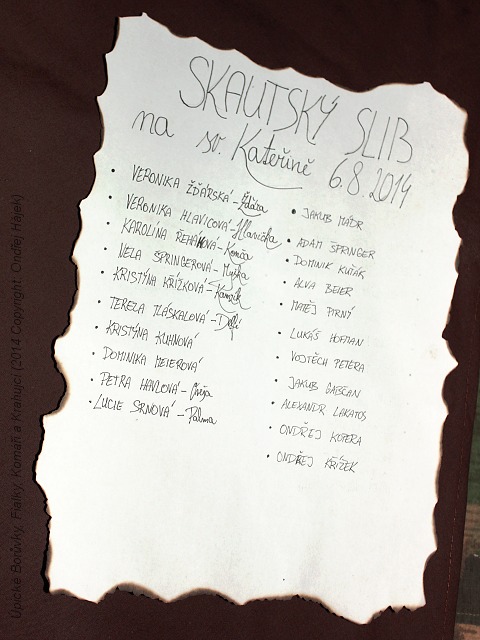 SKAUTSKÝ SLIB
na sv. Kateřině 6.8.2014
• VERONIKA ŽĎÁRSKÁ - Žďára
• VERONIKA HLAVICOVÁ - Hlavička
• KAROLINA ŘEHÁKOVÁ - Komča
• NELA SPRINGEROVÁ - Myška
• KRISTÝNA KŘÍŽKOVÁ - Kamzík
• TEREZA TLÁSKALOVÁ -
• KRISTÝNA KUHNOVÁ
• DOMINIKA MEIEROVÁ
• PETRA HAVLOVÁ -
• LUCIE SRNOVÁ - Palma
• JAKUB MÁDR
• ADAM SPRINGER
• DOMINIK KUŤÁK
• ALVA BEIER
• MATĚJ PIRNÝ
• LUKÁŠ HOFMAN
• VOJTĚCH PETERA
• JAKUB GABČAN
• ALEXANDR LAKATOS
• ONDŘEJ KOPERA
• ONDŘEJ KŘÍŽEK
Úpické Borůvky, Fialky, Komáři a Krahujci (2014 Copyright: Ondřej Hájek)